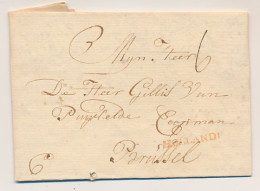 Mijn Heer
De Heer Gillis Van
Puijvelde Coopman
HOLLANDE
Brussel